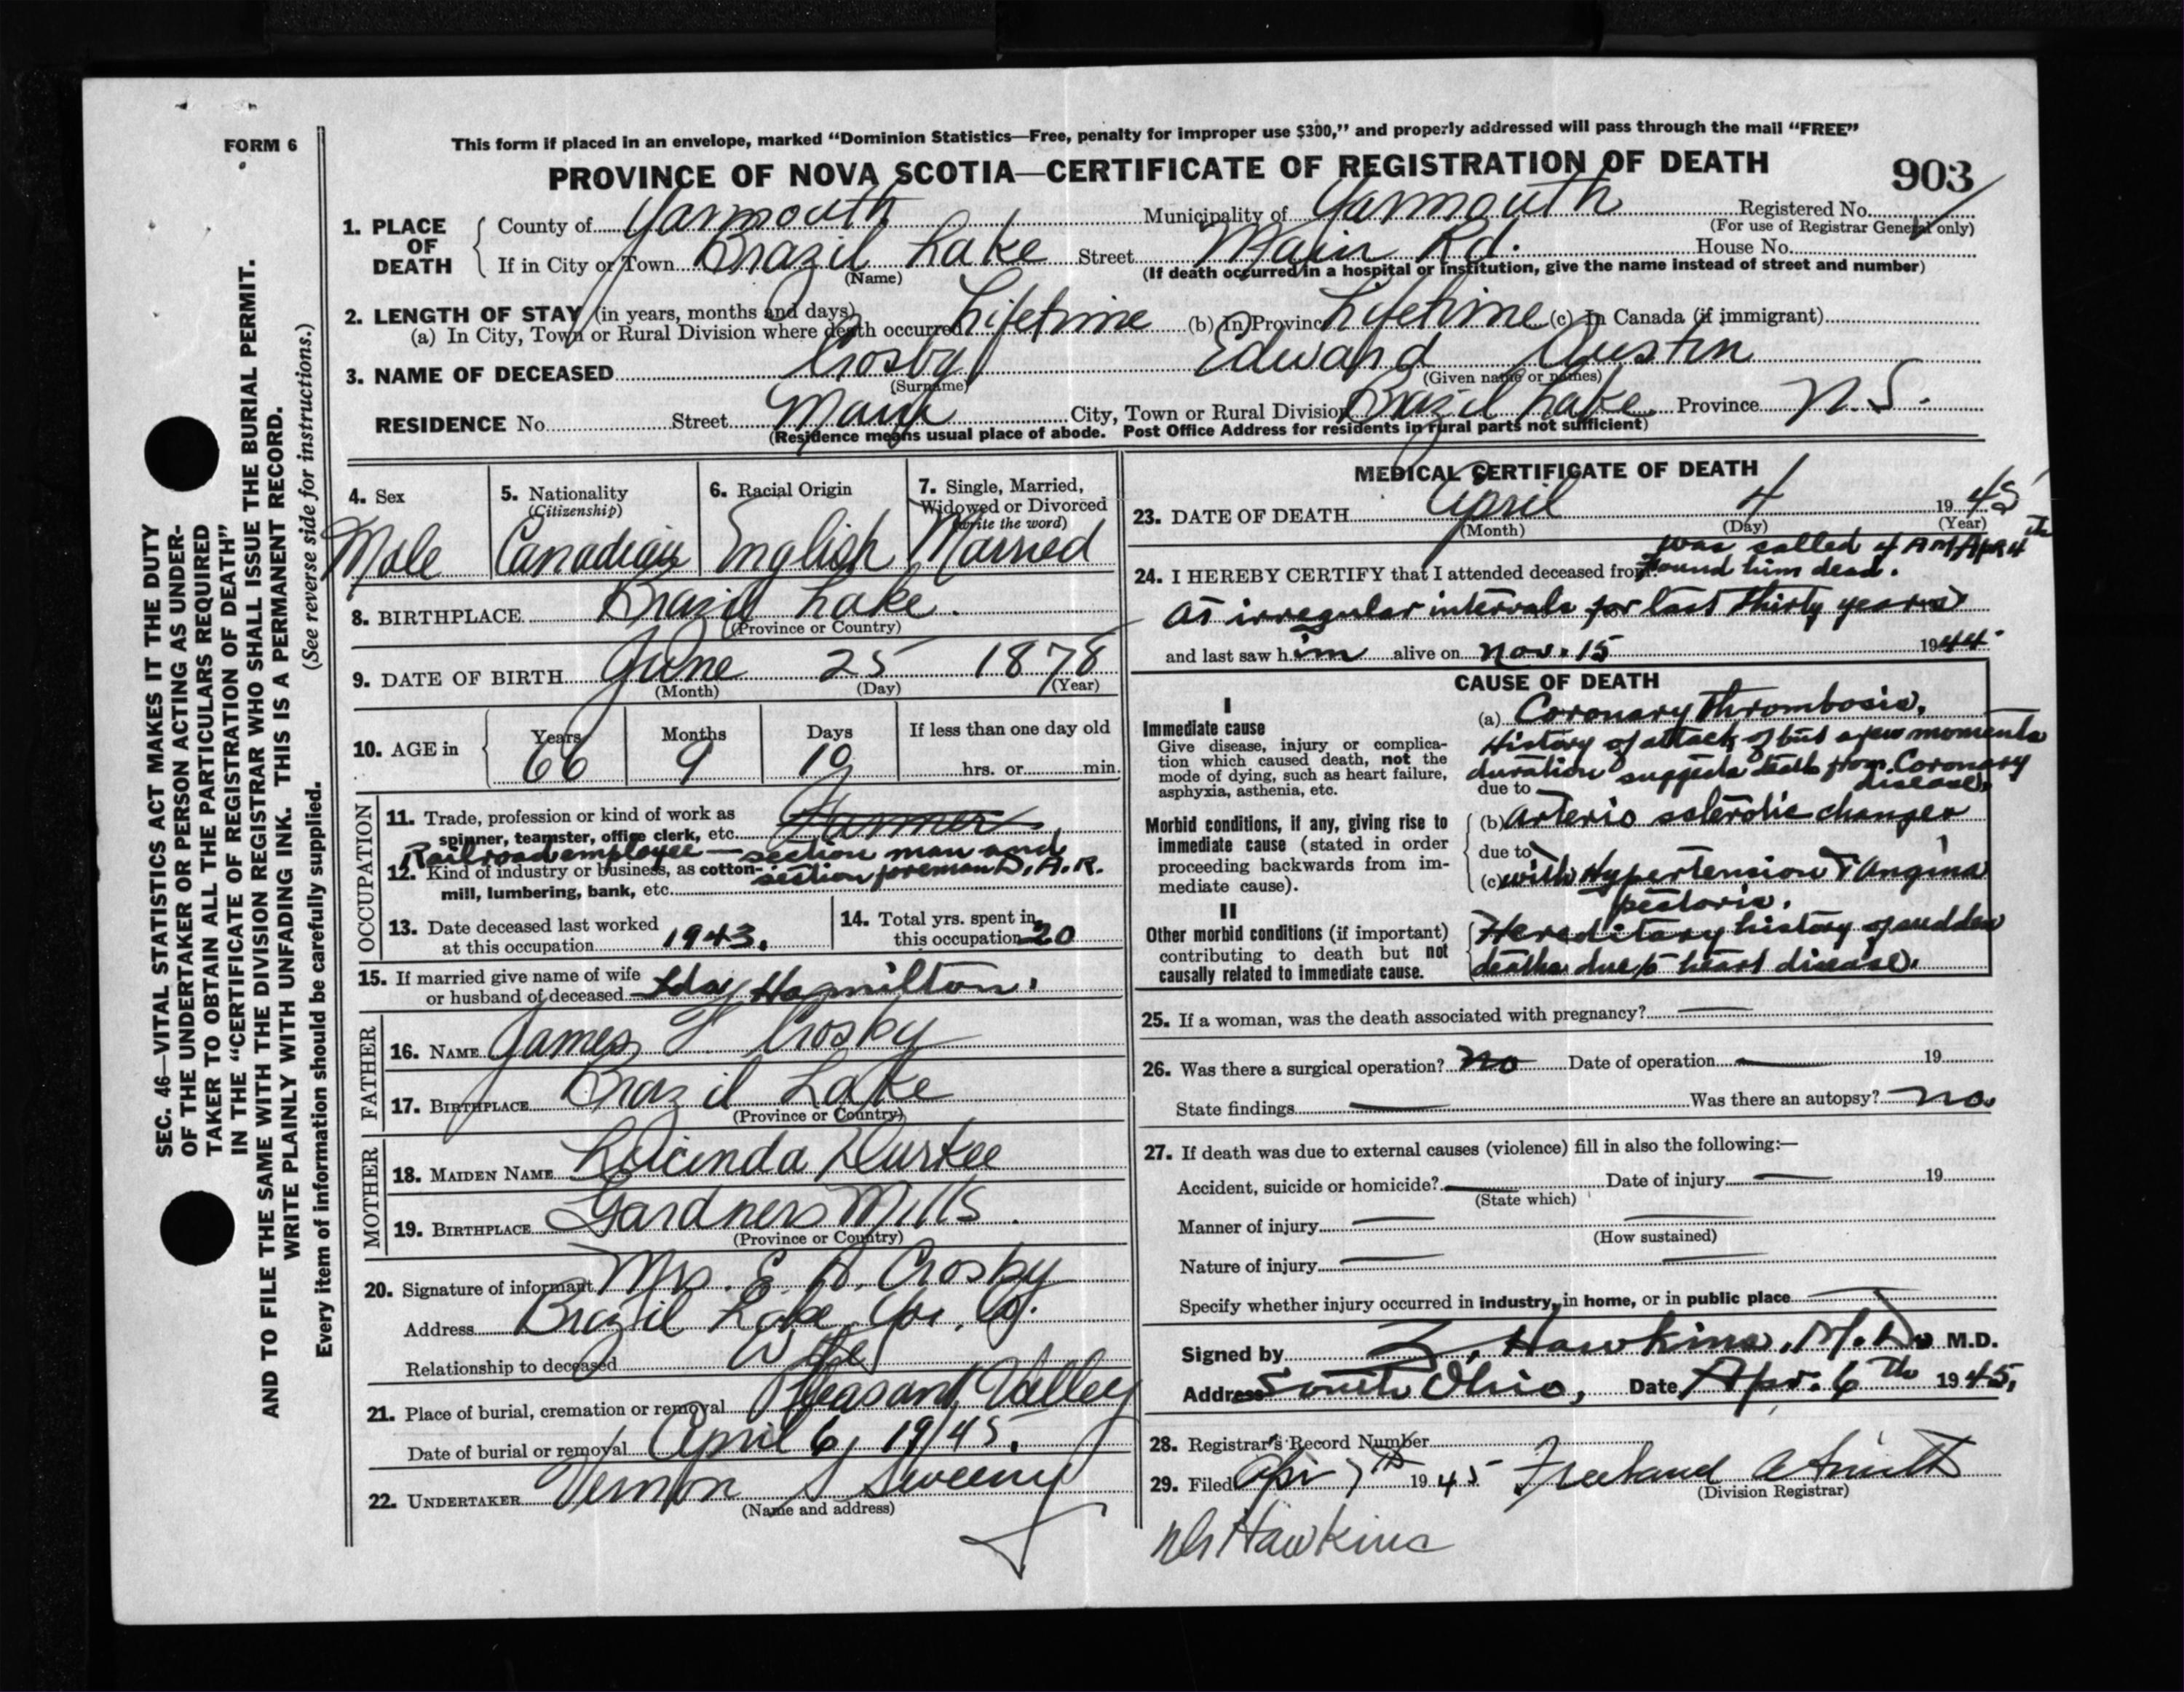 FORM 6
This form if placed in an envelope, marked “Dominion Statistics—Free, penalty for improper use $300,” and properly addressed will pass through the mail “FREE”
PROVINCE OF NOVA SCOTIA—CERTIFICATE OF REGISTRATION OF DEATH
903
1. PLACE OF DEATH
County of Yarmouth Municipality of Yarmouth Registered No.
(For use of Registrar General only)
If in City or Town Brazil Lake Street Main Rd. House No.
(Name) (If death occurred in a hospital or institution, give the name instead of street and number)
2. LENGTH OF STAY (in years, months and days)
(a) In City, Town or Rural Division where death occurred Lifetime (b) In Province Lifetime (c) In Canada (if immigrant)
3. NAME OF DECEASED Crosby Edward Austin
(Surname) (Given name or names)
RESIDENCE No. Street Main City, Town or Rural Division Brazil Lake Province N.S.
(Residence means usual place of abode. Post Office Address for residents in rural parts not sufficient)
SEC. 46—VITAL STATISTICS ACT MAKES IT THE DUTY
OF THE UNDERTAKER OR PERSON ACTING AS UNDER-
TAKER TO OBTAIN ALL THE PARTICULARS REQUIRED
IN THE “CERTIFICATE OF REGISTRATION OF DEATH”
AND TO FILE THE SAME WITH THE DIVISION REGISTRAR WHO SHALL ISSUE THE BURIAL PERMIT.
WRITE PLAINLY WITH UNFADING INK. THIS IS A PERMANENT RECORD.
Every item of information should be carefully supplied. (See reverse side for instructions.)
4. Sex
Male
5. Nationality
(Citizenship)
Canadian
6. Racial Origin
English
7. Single, Married,
Widowed or Divorced
(write the word)
Married
8. BIRTHPLACE Brazil Lake.
(Province or Country)
9. DATE OF BIRTH June 25 1878
(Month) (Day) (Year)
10. AGE in Years Months Days If less than one day old
66 9 10 hrs. or min.
OCCUPATION
11. Trade, profession or kind of work as
spinner, teamster, office clerk, etc. Farmer
Railroad employee – section man and
12. Kind of industry or business, as cotton- section foreman D.A.R.
mill, lumbering, bank, etc.
13. Date deceased last worked
at this occupation 1943.
14. Total yrs. spent in
this occupation 20
15. If married give name of wife
or husband of deceased Ida Hamilton.
FATHER
16. NAME James F Crosby
17. BIRTHPLACE Brazil Lake
(Province or Country)
MOTHER
18. MAIDEN NAME Lucinda Durkee
19. BIRTHPLACE Gardners Mills.
(Province or Country)
20. Signature of informant Mrs. E. A. Crosby
Address Brazil Lake Yar. Co.
Relationship to deceased Wife
21. Place of burial, cremation or removal Pleasant Valley
Date of burial or removal April 6, 1945.
22. UNDERTAKER Vernon S Sweeny
(Name and address)
MEDICAL CERTIFICATE OF DEATH
23. DATE OF DEATH April 4 1945
(Month) (Day) (Year)
was called 4 AM Apr 4th
24. I HEREBY CERTIFY that I attended deceased from found him dead.
At irregular intervals for last thirty years
and last saw him alive on Nov. 15 1944.
CAUSE OF DEATH
I
Immediate cause
Give disease, injury or complica-
tion which caused death, not the
mode of dying, such as heart failure,
asphyxia, asthenia, etc.
(a) Coronary Thrombosis.
History of attack of but a few moments
duration suggests death from Coronary
due to disease.
Morbid conditions, if any, giving rise to
immediate cause (stated in order
proceeding backwards from im-
mediate cause).
(b) Arterio sclerotic changes
due to
(c) with Hypertension & Angina
pectoris.
II
Other morbid conditions (if important)
contributing to death but not
causally related to immediate cause.
Hereditary history of sudden
deaths due to heart disease.
25. If a woman, was the death associated with pregnancy? —
26. Was there a surgical operation? no Date of operation — 19
State findings — Was there an autopsy? no
27. If death was due to external causes (violence) fill in also the following:—
Accident, suicide or homicide? — Date of injury — 19
(State which)
Manner of injury — —
(How sustained)
Nature of injury — —
Specify whether injury occurred in industry, in home, or in public place —
Signed by Z. Hawkins, M.D. M.D.
Address South Ohio, Date Apr. 6th 1945,
28. Registrar's Record Number
29. Filed Apr 7th 1945 Freeland A Smith
(Division Registrar)
Dr Hawkins